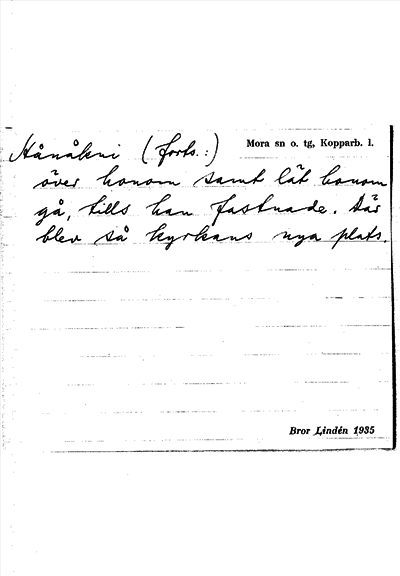 Hånåkni (forts.:)
Mora sn o. tg, Kopparb. l.
över honom samt lät honom
gå, tills han fastnade. Där
blev så kyrkans nya plats.
Bror Lindén 1935